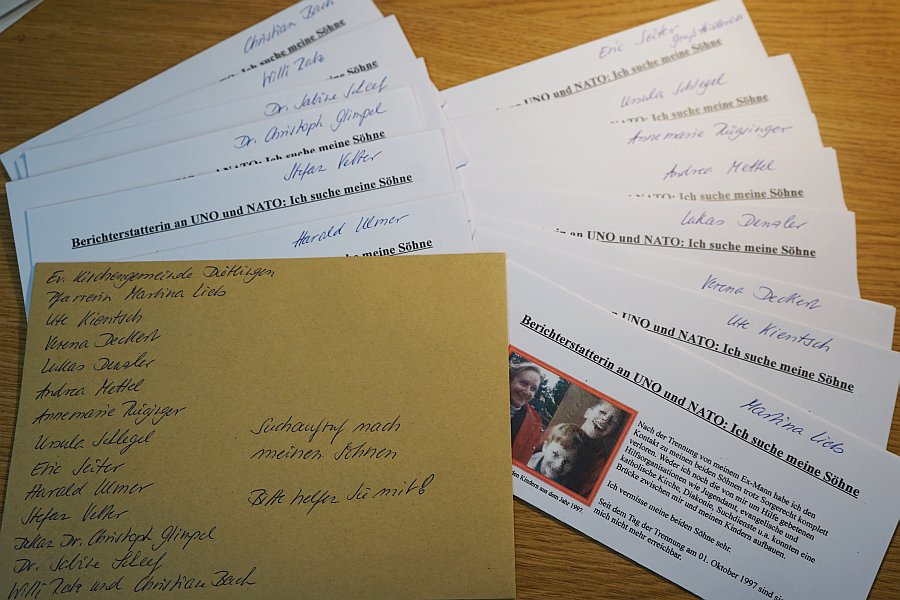 Christian Bach
NO: Ich suche meine Söhne
Willi Zatz
Ich suche meine Söhne
Dr. Sabine Schlef
Ich suche meine Söhne
Dr. Christoph Glimpel
Ich suche meine Söhne
Stefan Velter
Berichterstatterin an UNO und NATO: Ich suche meine Söhne
Harald Ulmer
Ich suche meine Söhne
Eric Seiter
an UNO und NATO: Ich suche meine Söhne
Ursula Schlegel
Ich suche meine Söhne
Annemarie
Andrea Mettel
Ich suche meine Söhne
Lukas Denzler
in an UNO und NATO: Ich suche meine Söhne
Verena Deckert
Ute Kientsch
UNO und NATO: Ich suche meine Söhne
Martina Lieb
Berichterstatterin an UNO und NATO: Ich suche meine Söhne
Nach der Trennung von meinem Ex-Mann habe ich den
Kontakt zu meinen beiden Söhnen trotz Sorgerecht komplett
verloren. Weder ich noch die von mir um Hilfe gebetenen
Hilfsorganisationen wie Jugendamt, evangelische und
katholische Kirche, Diakonie, Suchdienste u.a. konnten eine
Brücke zwischen mir und meinen Kindern aufbauen.
Ich vermisse meine beiden Söhne sehr.
Seit dem Tag der Trennung am 01. Oktober 1997 sind sie
mich nicht mehr erreichbar.
den Kindern aus dem Jahr 1997.
Ev. Kirchengemeinde Dietlingen
Pfarrerin Martina Lieb
Ute Kientsch
Verena Deckert
Lukas Denzler
Andrea Mettel
Annemarie
Ursula Schlegel
Eric Seiter
Harald Ulmer
Stefan Velter
Dekan Dr. Christoph Glimpel
Dr. Sabine Schlef
Willi Zatz und Christian Bach
Suchaufruf nach
meinen Söhnen
Bitte helfen Sie mit!